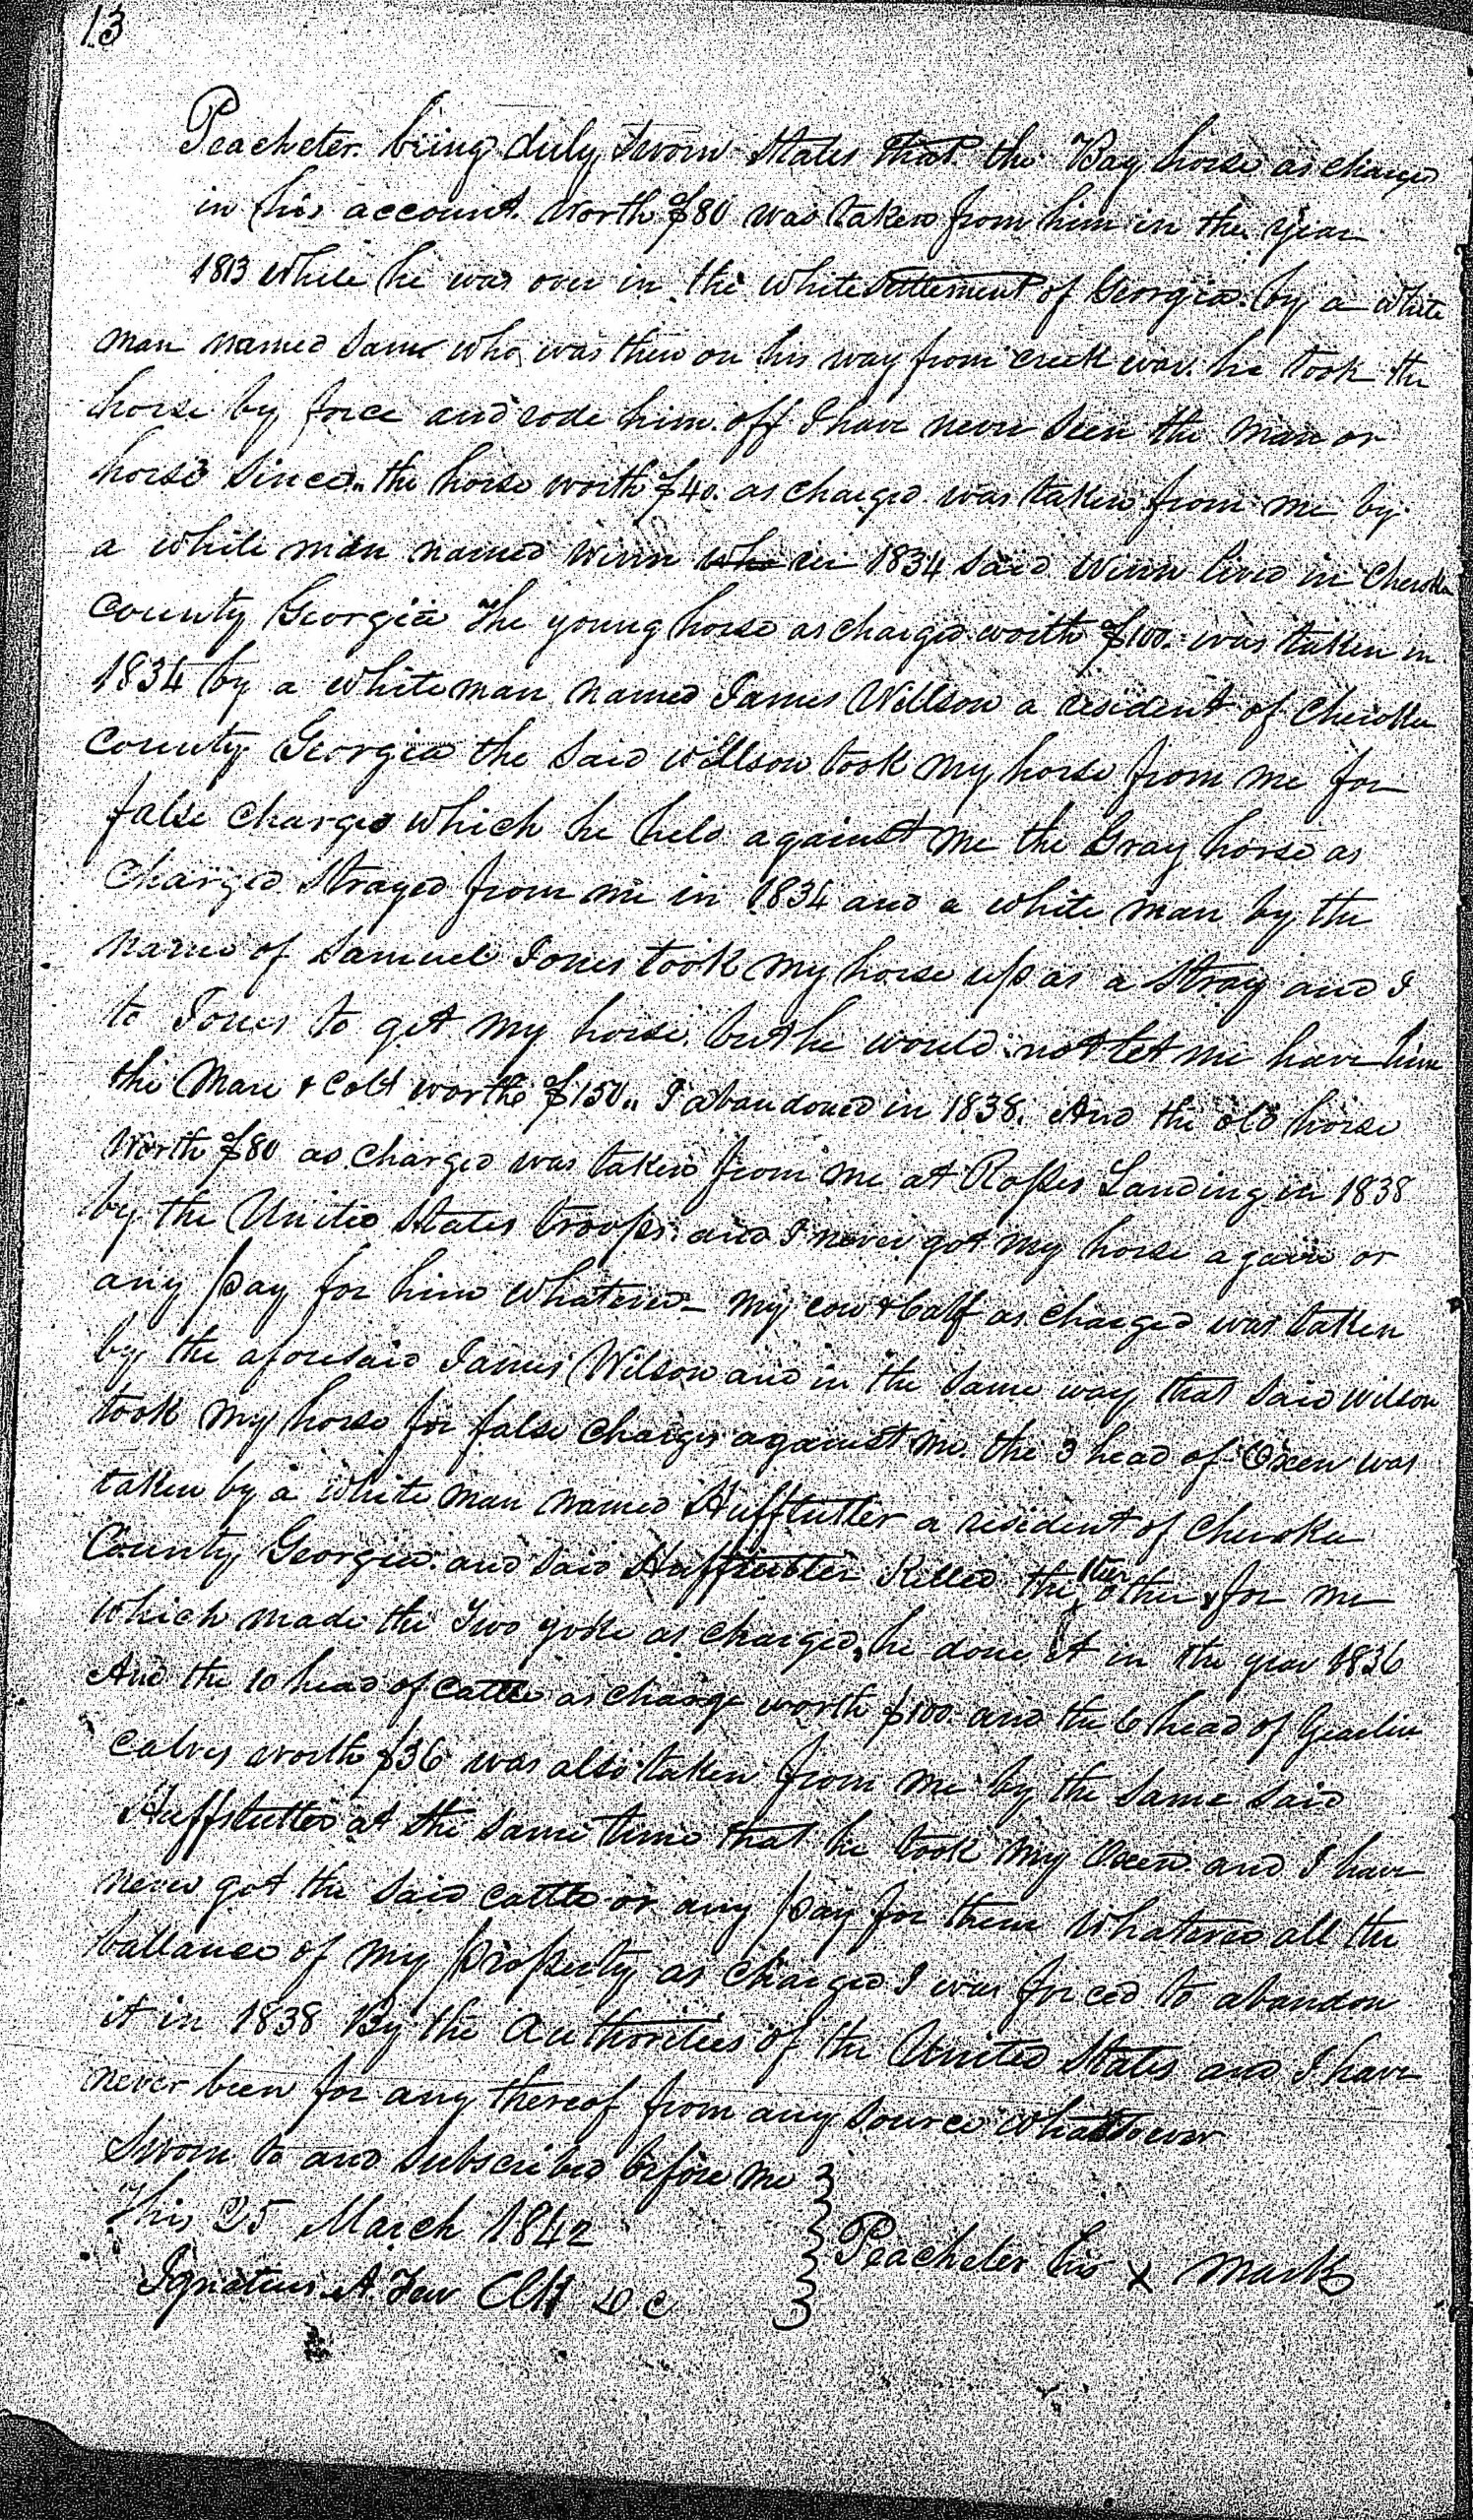 13
Peacheter being duly sworn States that the Bay horse as charged
in his account worth $80 was taken from him in the year
1813 while he was over in the white settlement of Georgia by a white
man named Sam who was then on his way from creek war. he took the
horse by force and rode him off I have never seen the man or
horse since. the horse worth $40. as charged was taken from me by
a white man named Winn who in 1834 said Winn lived in Cherokee
County Georgia The young horse as charged worth $100. was taken in
1834 by a white man named James Willson a resident of Cherokee
County Georgia the said Willson took my horse from me for
false charges which he held against me the Gray horse as
charged strayed from me in 1834 and a white man by the
name of Samuel Jones took my horse up as a stray and I
to Jones to get my horse but he would not let me have him
the Mare & Colt worth $150,, I abandoned in 1838. And the old horse
worth $80 as charged was taken from me at Rosses Landing in 1838
by the United States troops and I never got my horse again or
any pay for him whatever - my cow & Calf as charged was taken
by the aforesaid James Wilson and in the same way that said wilson
took my horse for false charges against me. the 3 head of Oxen was
taken by a white man named Huffstutler a resident of Cherokee
County Georgia. and said Huffstutler Killed the other steer for me
which made the Two yoke as charged, he done it in the year 1836
And the 10 head of cattle as charge worth $100. and the 6 head of yearlin
calves worth $36 was also taken from me by the same said
Huffstutler at the same time that he took my Oxen and I have
never got the said cattle or any pay for them whatever all the
ballance of my property as charged I was forced to abandon
it in 1838 By the Authorities of the United States and I have
never been for any thereof from any source whatsoever
Sworn to and subscribed before me
This 25 March 1842
Peacheter his x mark
Ignatius A. Few Clk D C